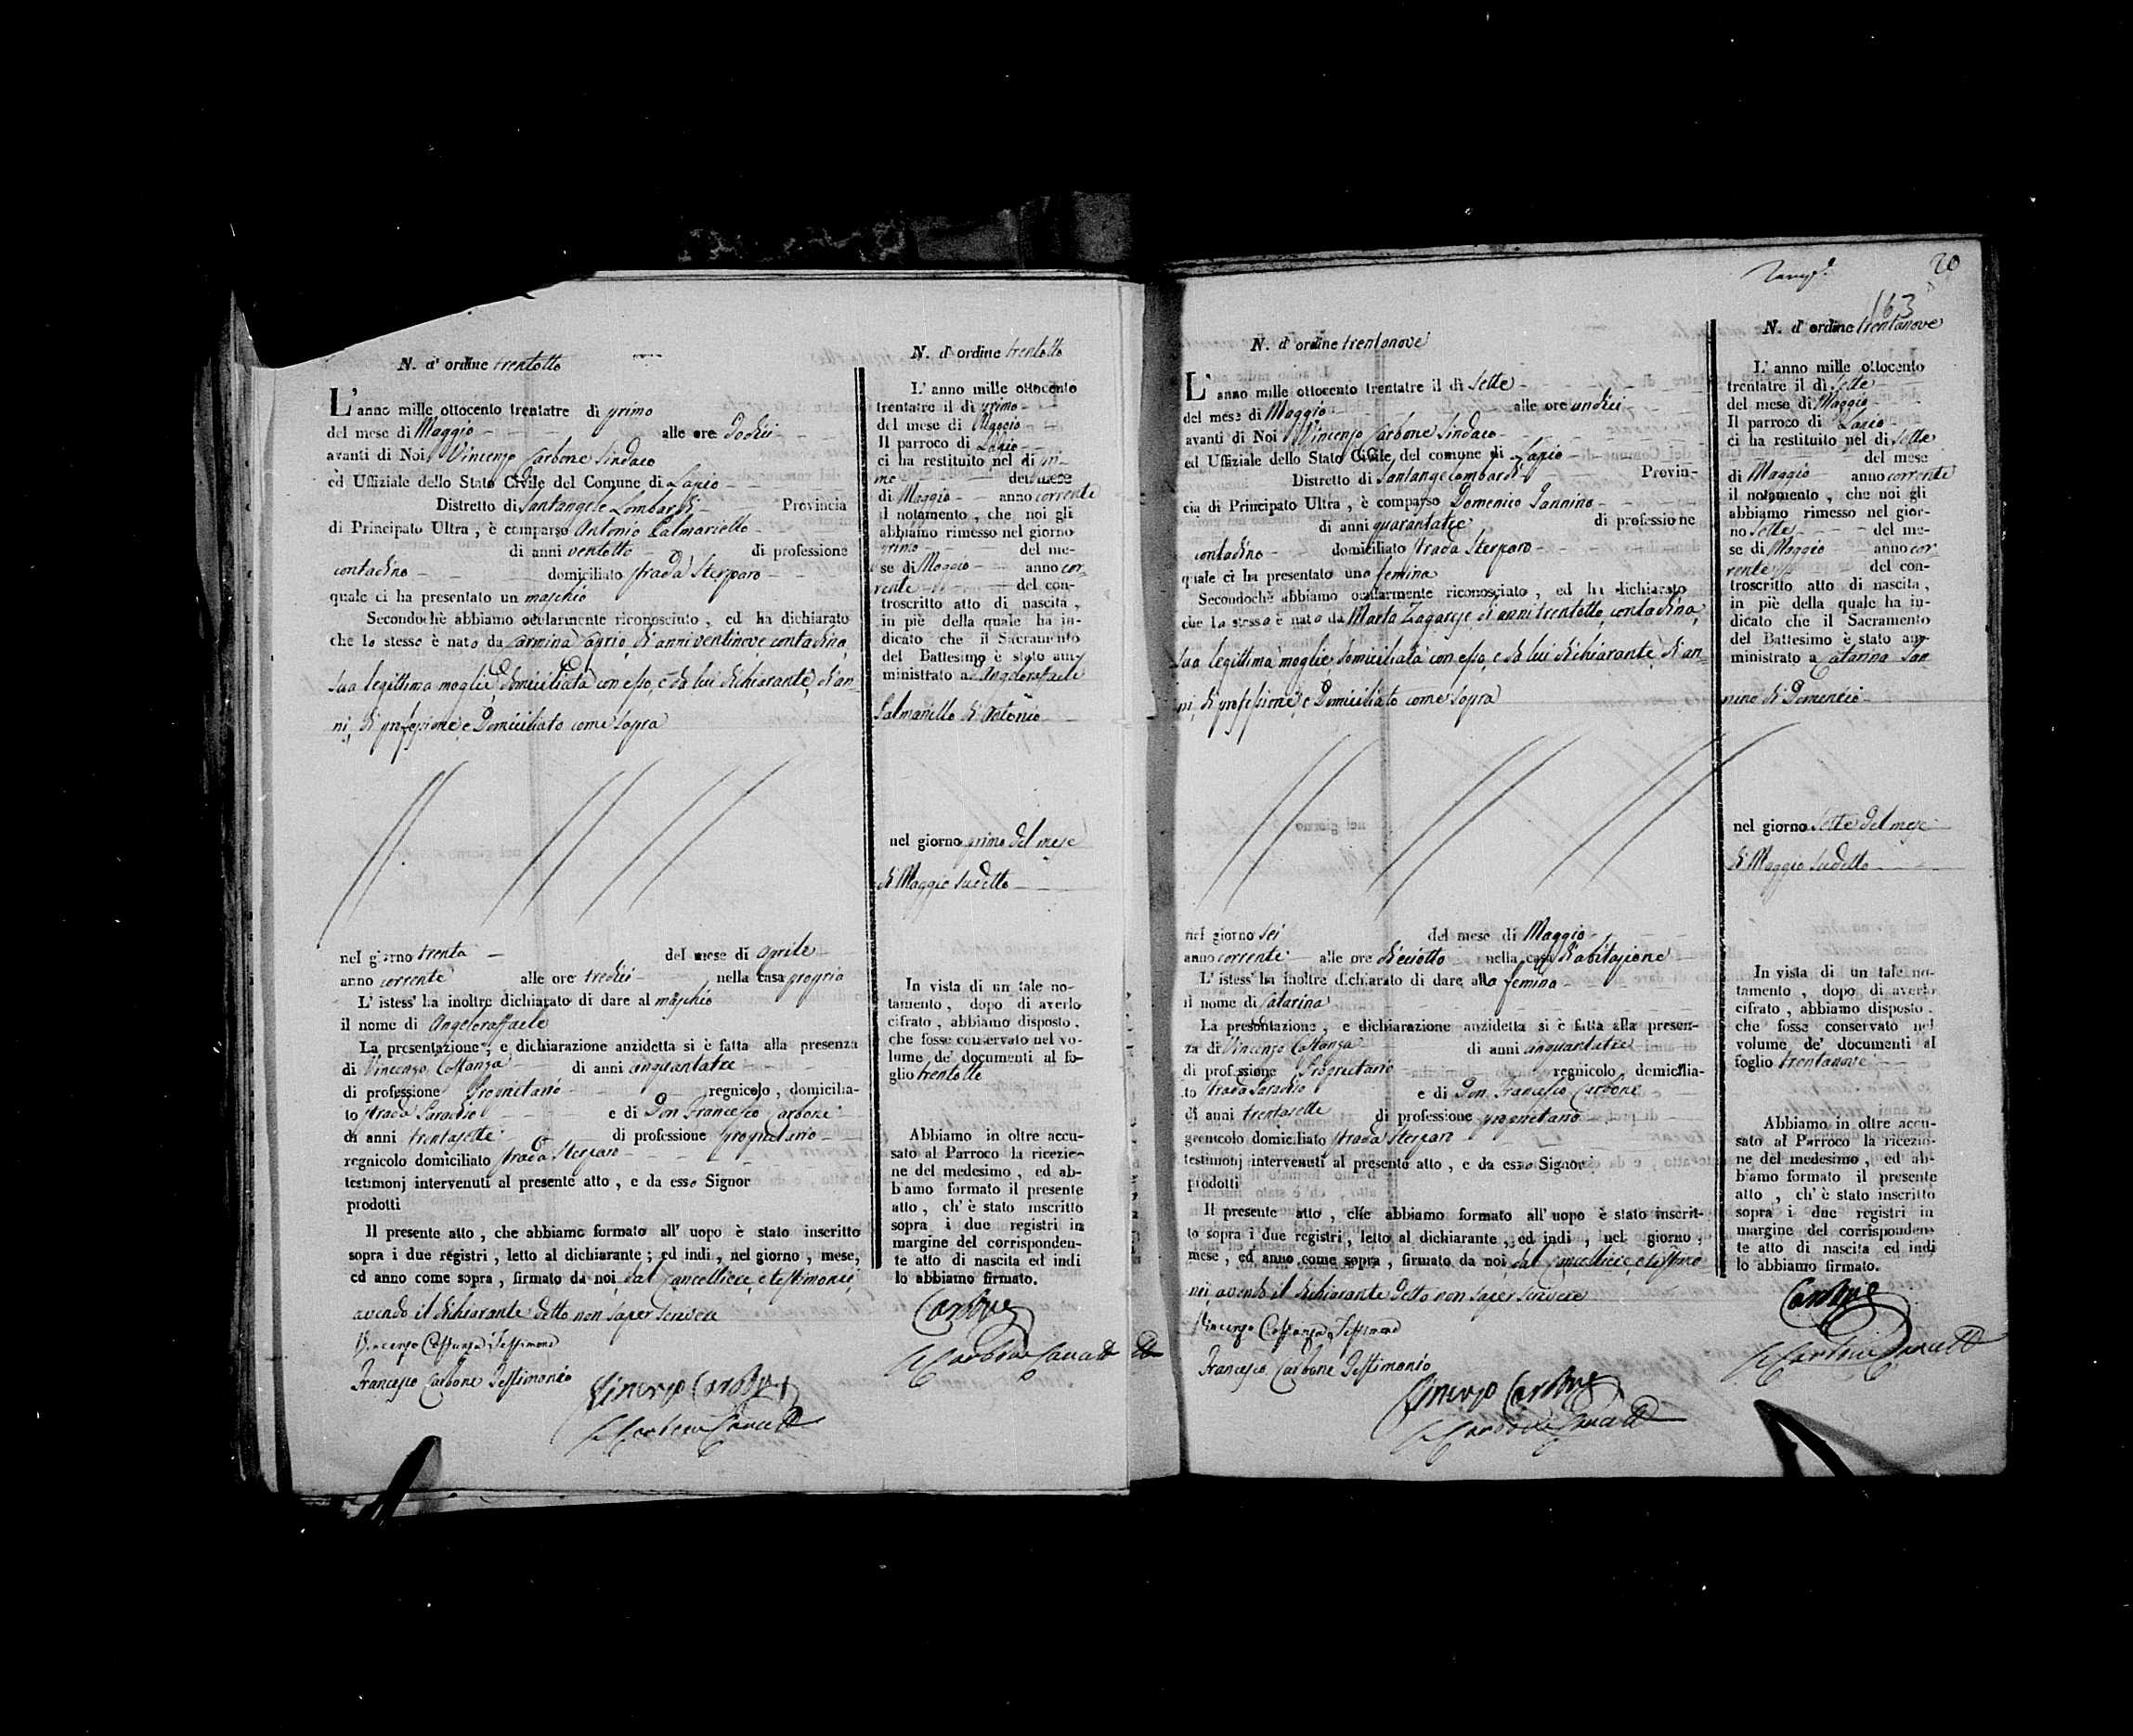 N. d' ordine trentotto
L' anno mille ottocento trentatre di primo
del mese di Maggio alle ore dodici
avanti di Noi Vincenzo Carbone Sindaco
ed Uffiziale dello Stato Civile del Comune di Lapio
Distretto di Santangelo Lombardi Provincia
di Principato Ultra , è comparso Antonio Palmariello
di anni ventotto di professione
contadino domiciliato strada Sterparo
quale ci ha presentato un maschio
Secondochè abbiamo ocularmente riconosciuto , ed ha dichiarato
che lo stesso è nato da Carmina Caprio di anni ventinove contadina
sua legittima moglie domiciliata con esso, e da lui dichiarante, di an-
ni, di professione e Domiciliato come sopra
nel giorno trenta del mese di aprile
anno corrente alle ore tredici nella casa propria
L' istess' ha inoltre dichiarato di dare al maschio
il nome di Angeloraffaele
La presentazione , e dichiarazione anzidetta si è fatta alla presenza
di Vincenzo Costanza di anni cinquantatre
di professione Proprietario regnicolo , domicilia-
to strada Paradiso e di Don Francesco Carbone
di anni trentasette di professione proprietario
regnicolo domiciliato strada Sterparo
testimonj intervenuti al presente atto , e da esso Signor
prodotti
Il presente atto , che abbiamo formato all' uopo è stato inscritto
sopra i due registri , letto al dichiarante ; ed indi , nel giorno , mese,
ed anno come sopra , firmato da noi, dal Cancelliere, e testimonii
avendo il dichiarante detto non saper scrivere
Vincenzo Costanza Testimonio
Francesco Carbone Testimonio
Vincenzo Carbone
N. d' ordine trentotto
L' anno mille ottocento
trentatre il di primo
del mese di Maggio
Il parroco di Lapio
ci ha restituito nel di pri-
mo del mese
di Maggio anno corrente
il notamento , che noi gli
abbiamo rimesso nel giorno
primo del me-
se di Maggio anno cor-
rente del con-
troscritto atto di nascita ,
in piè della quale ha in-
dicato che il Sacramento
del Battesimo è stato am-
ministrato a Angeloraffaele
Palmariello di Antonio
nel giorno primo del mese
di Maggio sudetto
In vista di un tale no-
tamento , dopo di averlo
cifrato , abbiamo disposto ,
che fosse conservato nel vo-
lume de' documenti al fo-
glio trentotto
Abbiamo in oltre accu-
sato al Parroco la ricezio-
ne del medesimo , ed ab-
biamo formato il presente
atto , ch' è stato inscritto
sopra i due registri in
margine del corrisponden-
te atto di nascita ed indi
lo abbiamo firmato.
Carbone
20
163
N. d' ordine trentanove
L' anno mille ottocento trentatre il di sette
del mese di Maggio alle ore undici
avanti di Noi Vincenzo Carbone Sindaco
ed Uffiziale dello Stato Civile, del comune di Lapio
Distretto di Santangelo Lombardi Provin-
cia di Principato Ultra , è comparso Domenico Iannino
di anni quarantatre di professione
contadino domiciliato strada Sterparo
quale ci ha presentato una femina
Secondochè abbiamo ocularmente riconosciato , ed ha dichiarato
che la stessa è nata da Marta Zagarese di anni trentotto, contadina,
sua legittima moglie domiciliata con esso, e da lui dichiarante, di an-
ni, di professione, e Domiciliato come sopra
nel giorno sei del mese di Maggio
anno corrente alle ore dieciotto nella casa d'abitazione
L' istess' ha inoltre dichiarato di dare alla femina
il nome di Catarina
La presentazione , e dichiarazione anzidetta si è fatta alla presen-
za di Vincenzo Costanza di anni cinquantatre
di professione Proprietario regnicolo domicilia-
to strada Paradiso e di Don Francesco Carbone
di anni trentasette di professione proprietario
gregnicolo domiciliato strada Sterparo
testimonj intervenuti al presente atto , e da esso Signor
prodotti
Il presente atto , che abbiamo formato all' uopo è stato inscrit-
to sopra i due registri , letto al dichiarante , ed indi , nel giorno ,
mese , ed anno come sopra , firmato da noi, dal Cancelliere, e testimo-
nii, avendo il dichiarante detto non saper scrivere
Vincenzo Costanza Testimonio
Francesco Carbone Testimonio
Vincenzo Carbone
N. d' ordine trentanove
L' anno mille ottocento
trentatre il di sette
del mese di Maggio
Il parroco di Lapio
ci ha restituito nel di sette
del mese
di Maggio anno corrente
il notamento , che noi gli
abbiamo rimesso nel gior-
no sette del me-
se di Maggio anno cor-
rente del con-
troscritto atto di nascita ,
in piè della quale ha in-
dicato che il Sacramento
del Battesimo è stato am-
ministrato a Catarina Ian
nino di Domenico
nel giorno sette del mese
di Maggio sudetto
In vista di un tale no-
tamento , dopo di averlo
cifrato , abbiamo disposto ,
che fosse conservato nel
volume de' documenti al
foglio trentanove
Abbiamo in oltre accu-
sato al Parroco la ricezio-
ne del medesimo , ed ab-
biamo formato il presente
atto , ch' è stato inscritto
sopra i due registri in
margine del corrisponden-
te atto di nascita ed indi
lo abbiamo firmato.
Carbone